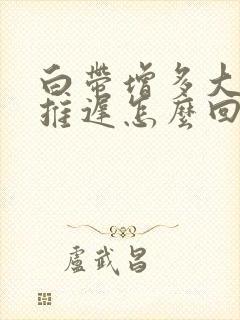 白帶增多大
推遲怎麼回
盧武昌